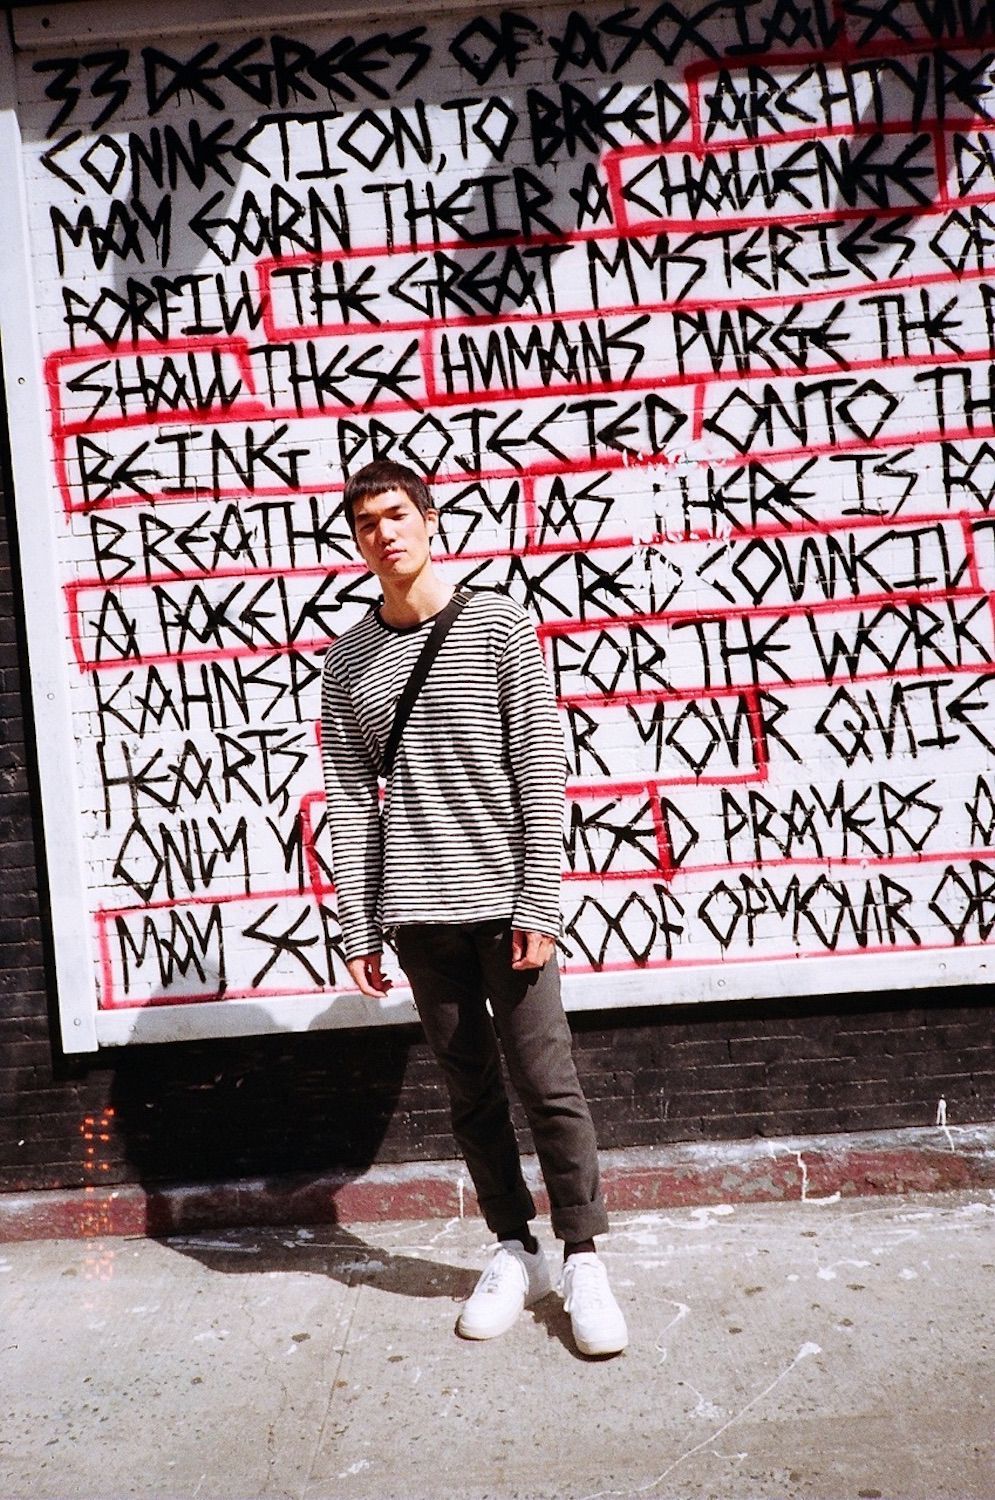 33 DEGREES OF ASOCIAL
CONNECTION, TO BREED ARCHTYPE
MAY EARN THEIR A CHALLENGE
FORFIW THE GREAT MYSTERIES OF
SHALL THESE HUMANS PURGE THE
BEING PROJECTED ONTO TH
BREATHE AS HERE IS
A FACELES SACRED COUNCIL
KAHNSP FOR THE WORK
HEARTS, R YOUR QUIE
ONLY YO USED PRAYERS A
MAY SER OOF OF YOUR OB